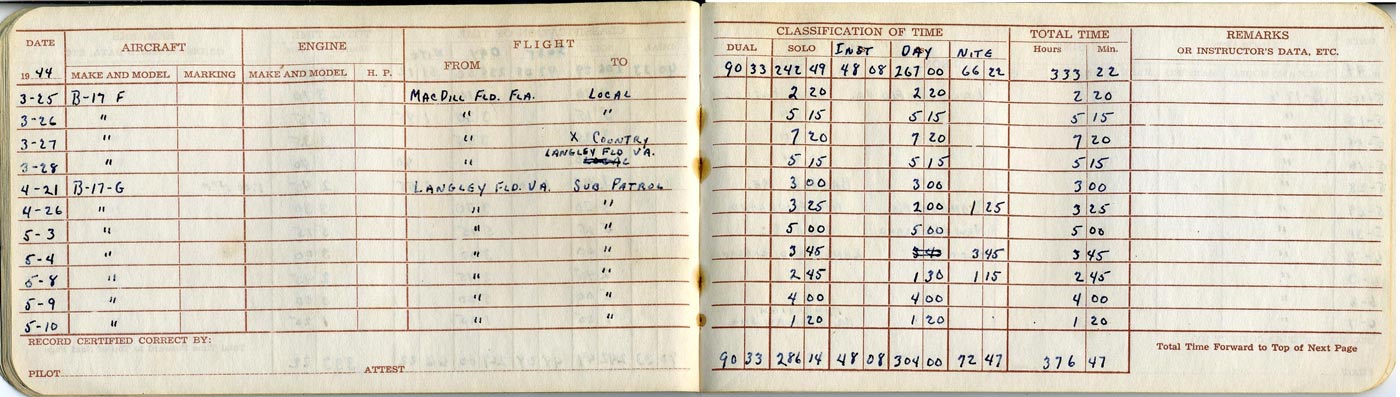 DATE AIRCRAFT ENGINE FLIGHT CLASSIFICATION OF TIME TOTAL TIME REMARKS
FROM TO DUAL SOLO INST DAY NITE Hours Min. OR INSTRUCTOR'S DATA, ETC.
1944 MAKE AND MODEL MARKING MAKE AND MODEL H. P. 90 33 242 49 48 08 267 00 66 22 333 22
3-25 B-17 F MACDILL FLD. FLA. LOCAL 2 20 2 20 2 20
3-26 " " " 5 15 5 15 5 15
3-27 " " X COUNTRY 7 20 7 20 7 20
LANGLEY FLD VA.
3-28 " " LOCAL 5 15 5 15 5 15
4-21 B-17-G LANGLEY FLD. VA. SUB PATROL 3 00 3 00 3 00
4-26 " " " 3 25 2 00 1 25 3 25
5-3 " " " 5 00 5 00 5 00
5-4 " " " 3 45 3 45 3 45 3 45
5-8 " " " 2 45 1 30 1 15 2 45
5-9 " " " 4 00 4 00 4 00
5-10 " " " 1 20 1 20 1 20
RECORD CERTIFIED CORRECT BY: Total Time Forward to Top of Next Page
90 33 286 14 48 08 304 00 72 47 376 47
PILOT ATTEST